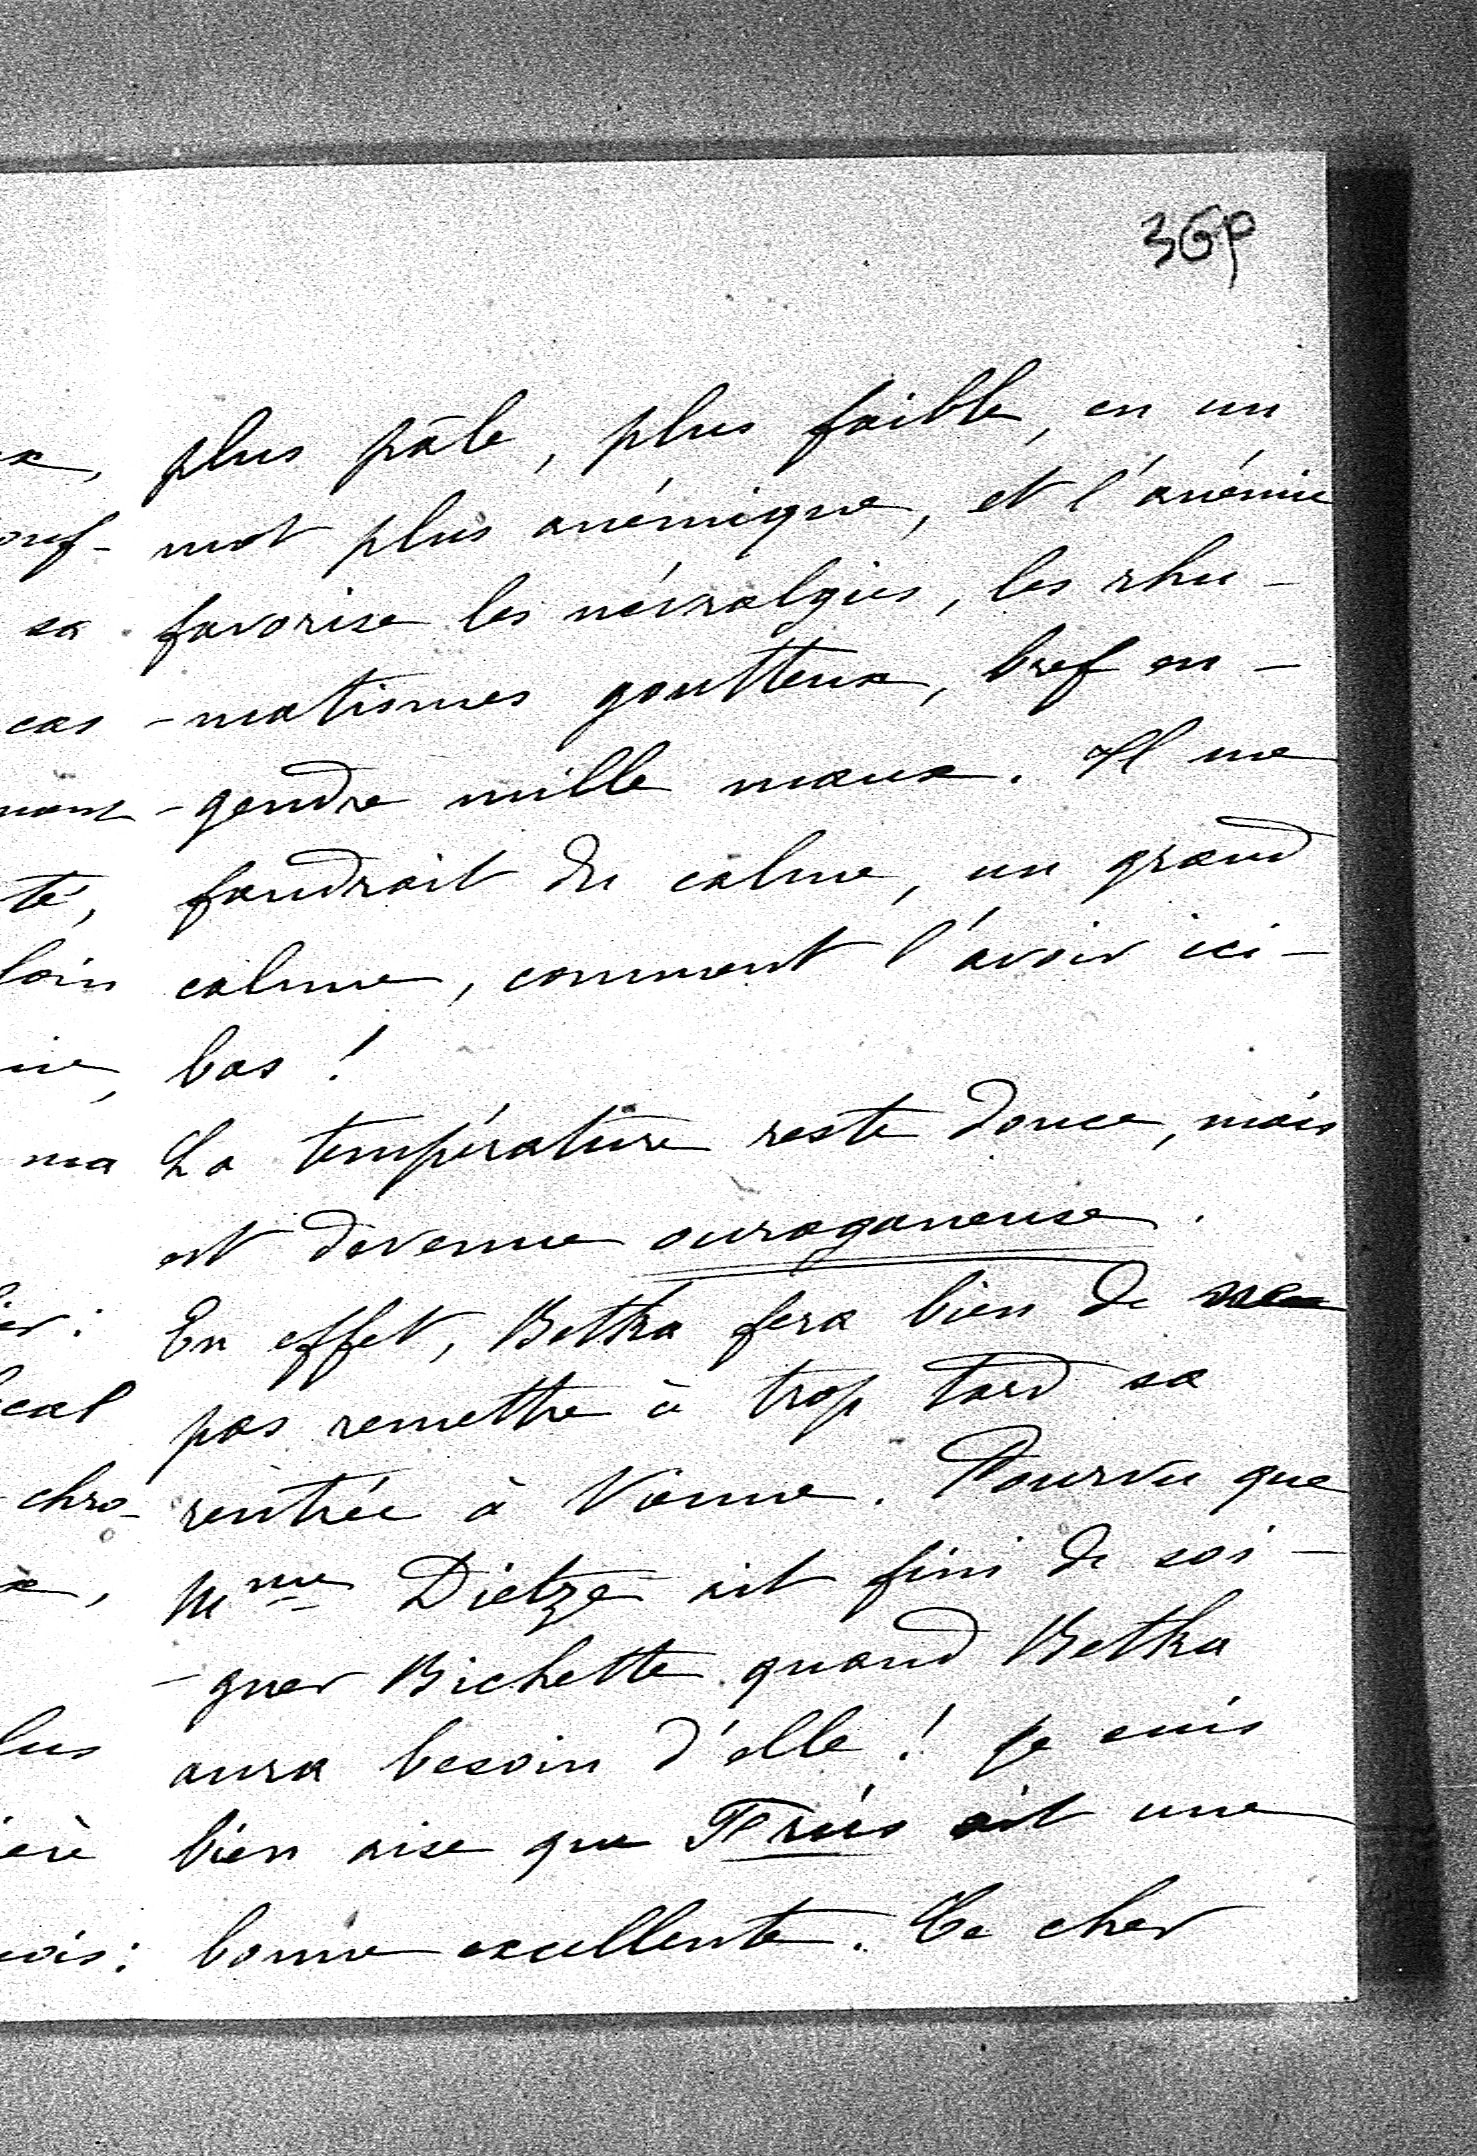 3Gp
plus pâle, plus faible, en un
mot plus anémique, et l'anémie
favorise les névralgies, les rhu-
-matismes goutteux, bref en-
-gendre mille maux. Il me
faudrait du calme, un grand
calme, comment l'avoir ici-
bas !
La température reste douce, mais
est devenue ouraganeuse.
En effet, Betka fera bien de ne
pas remettre à trop tard sa
rentrée à Vienne. Pourvu que
Mme Dietze ait fini de soi-
-gner Bichette quand Betka
aura besoin d'elle ! Je suis
bien aise que ait une
bonne excellente. Ce cher
sa
cas
té,
loin
ma
chro-